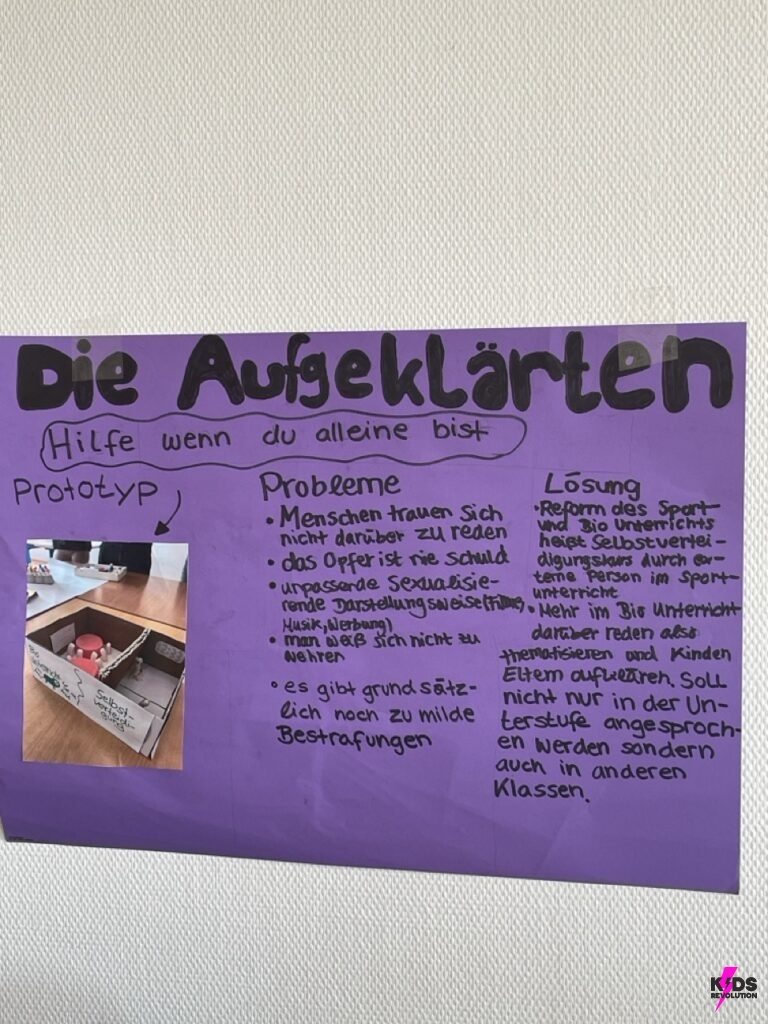 Die Aufgeklärten
Hilfe wenn du alleine bist
Prototyp
Probleme
• Menschen trauen sich
nicht darüber zu reden
• das Opfer ist nie schuld
• unpassende Sexualisie-
rende Darstellungsweise (Filme,
Musik, Werbung)
• man weiß sich nicht zu
wehren
• es gibt grundsätz-
lich noch zu milde
Bestrafungen
Lösung
• Reform des Sport-
und Bio Unterrichts
heißt Selbstvertei-
digungskurs durch ex-
terne Person im Sport-
unterricht
• Mehr im Bio Unterricht
darüber reden also
thematisieren und Kinden
Eltern aufklären. Soll
nicht nur in der Un-
terstufe angesproch-
en werden sondern
auch in anderen
Klassen.
Bio
Selbst-
verteidi-
gung
KIDS
REVOLUTION